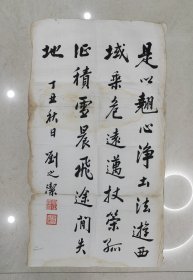 是以翘心净土法遊西
域乘危遠邁杖策孤
征積雪晨飛途間失
地
丁丑秋日 劉之潔